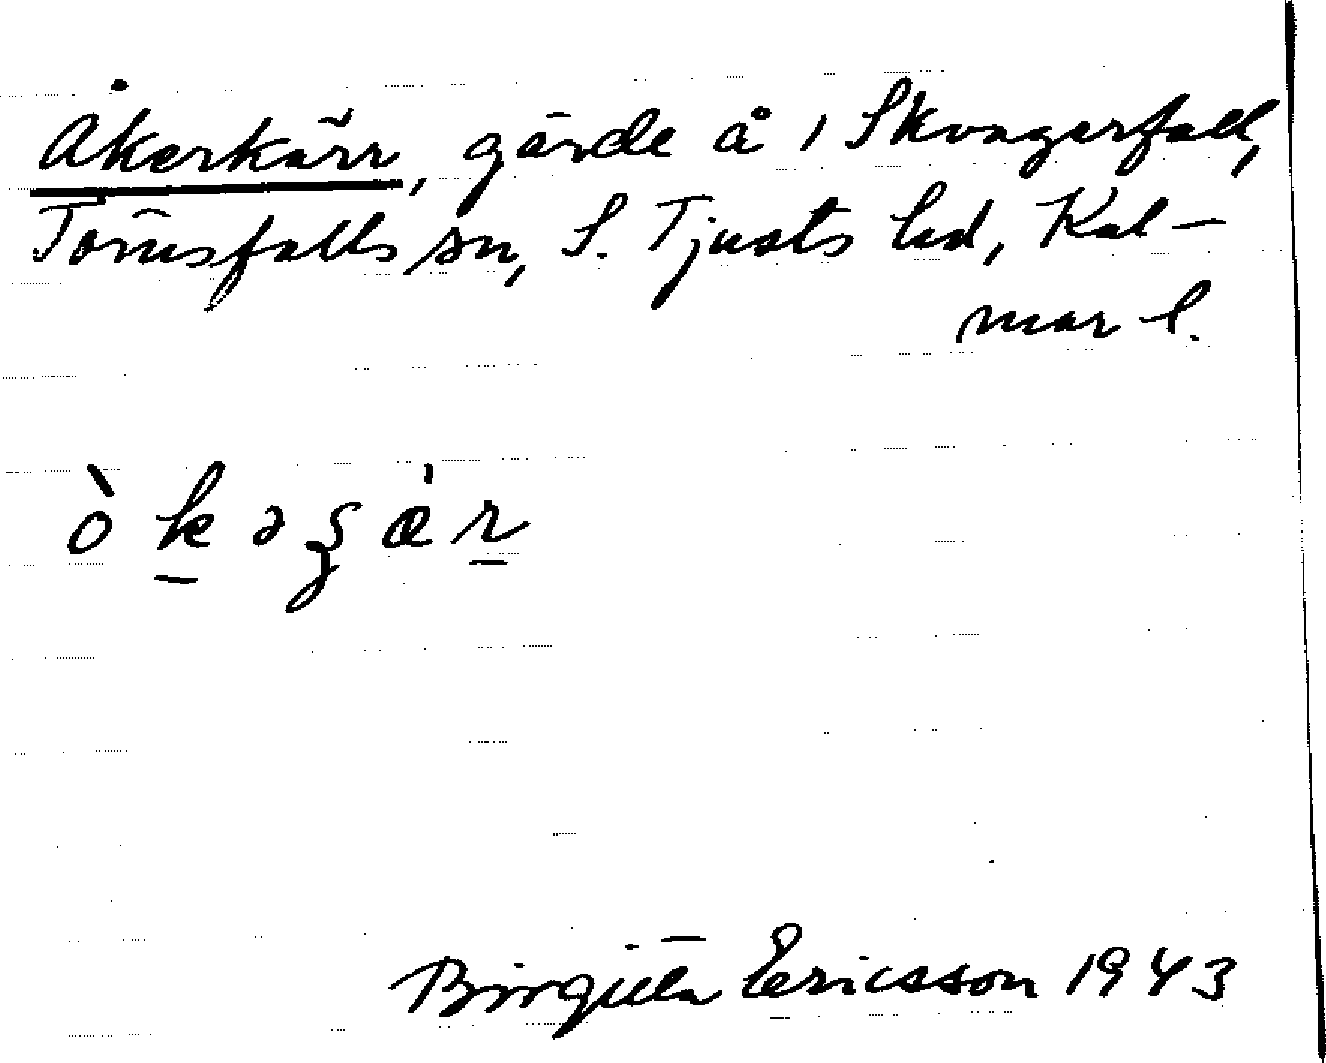 Åkerkärr, gärde å 1 Skvagerfall,
Törnsfalls sn, S. Tjusts hd, Kal-
mar l.
Birgitta Ericsson 1943